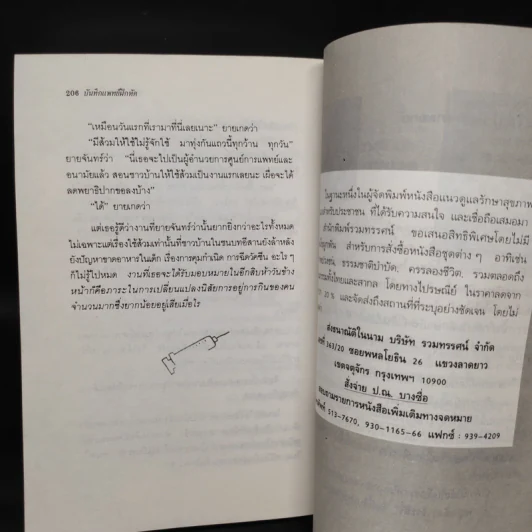 206 บันทึกแพทย์ฝึกหัด
"เหมือนวันแรกที่เรามาที่นี่เลยเนาะ" ยายเกดว่า
"มีส้วมให้ใช้ไม่รู้จักใช้ มาทุ่งกันแถวนี้ทุกว้าน ทุกวัน"
ยายจันทร์ว่า "นี่เธอจะไปเป็นผู้อำนวยการศูนย์การแพทย์และ
อนามัยแล้ว สอนชาวบ้านให้ใช้ส้วมเป็นงานแรกเลยนะ เผื่อจะได้
ลดพยาธิปากขอลงบ้าง"
"ได้" ยายเกดว่า
แต่เธอรู้ดีว่างานที่ยายจันทร์ว่านั้นยากยิ่งกว่าอะไรทั้งหมด
ไม่เฉพาะแต่เรื่องใช้ส้วมเท่านั้นที่ชาวบ้านในชนบทอีสานยังล้าหลัง
ยังปัญหาขาดอาหารในเด็ก เรื่องการคุมกำเนิด การฉีดวัคซีน อะไร ๆ
ก็ไม่รู้ไปหมด งานที่เธอจะได้รับมอบหมายในอีกสิบห้าวันข้าง
หน้าก็คือภาระในการเปลี่ยนแปลงนิสัยการอยู่การกินของคน
จำนวนมากซึ่งยากน้อยอยู่เสียเมื่อไร
ในฐานะหนึ่งในผู้จัดพิมพ์หนังสือแนวดูแลรักษาสุขภาพ
สำหรับประชาชน ที่ได้รับความสนใจ และเชื่อถือเสมอมา
สำนักพิมพ์รวมทรรศน์ ขอเสนอสิทธิพิเศษโดยไม่มี
ผูกพัน สำหรับการสั่งซื้อหนังสือชุดต่าง ๆ อาทิเช่น
ธรรมชาติบำบัด, ครรลองชีวิต, รวมตลอดถึง
ทั้งไทยและสากล โดยทางไปรษณีย์ ในราคาลดจาก
20 % และจัดส่งถึงสถานที่ที่ระบุอย่างชัดเจน โดยไม่
ส่งธนาณัติในนาม บริษัท รวมทรรศน์ จำกัด
363/20 ซอยพหลโยธิน 26 แขวงลาดยาว
เขตจตุจักร กรุงเทพฯ 10900
สั่งจ่าย ป.ณ. บางซื่อ
สอบถามรายการหนังสือเพิ่มเติมทางจดหมาย
513-7670, 930-1165-66 แฟกซ์ : 939-4209